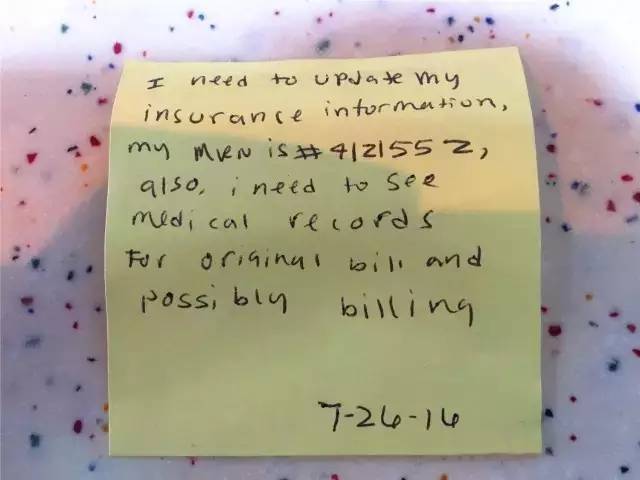 I need to update my
insurance information,
my MRN is # 4121552,
also, i need to see
medical records
For original bill and
possibly billing
7-26-16